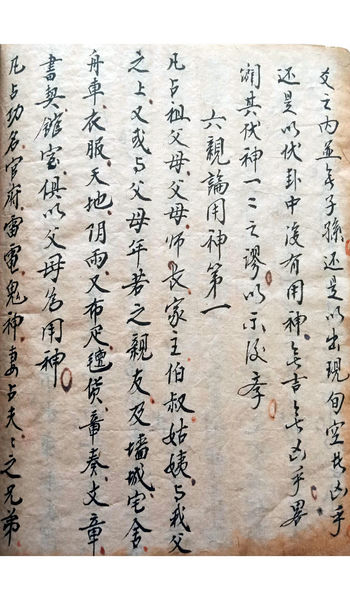 爻之内並无子孫还是以出現旬空无凶乎
还是以伏卦中没有用神无吉无凶乎畧
闡其伏神一二之謬以示後孝
六親論用神第一
凡占祖父母父母師長家主伯叔姑姨与我父
之上又或与父母年若之親友及墻城宅舍
舟車衣服天地阴雨又布疋氊貨章奏文章
書契館室俱以父母為用神
凡占功名官府雷電鬼神妻占夫〻之兄弟